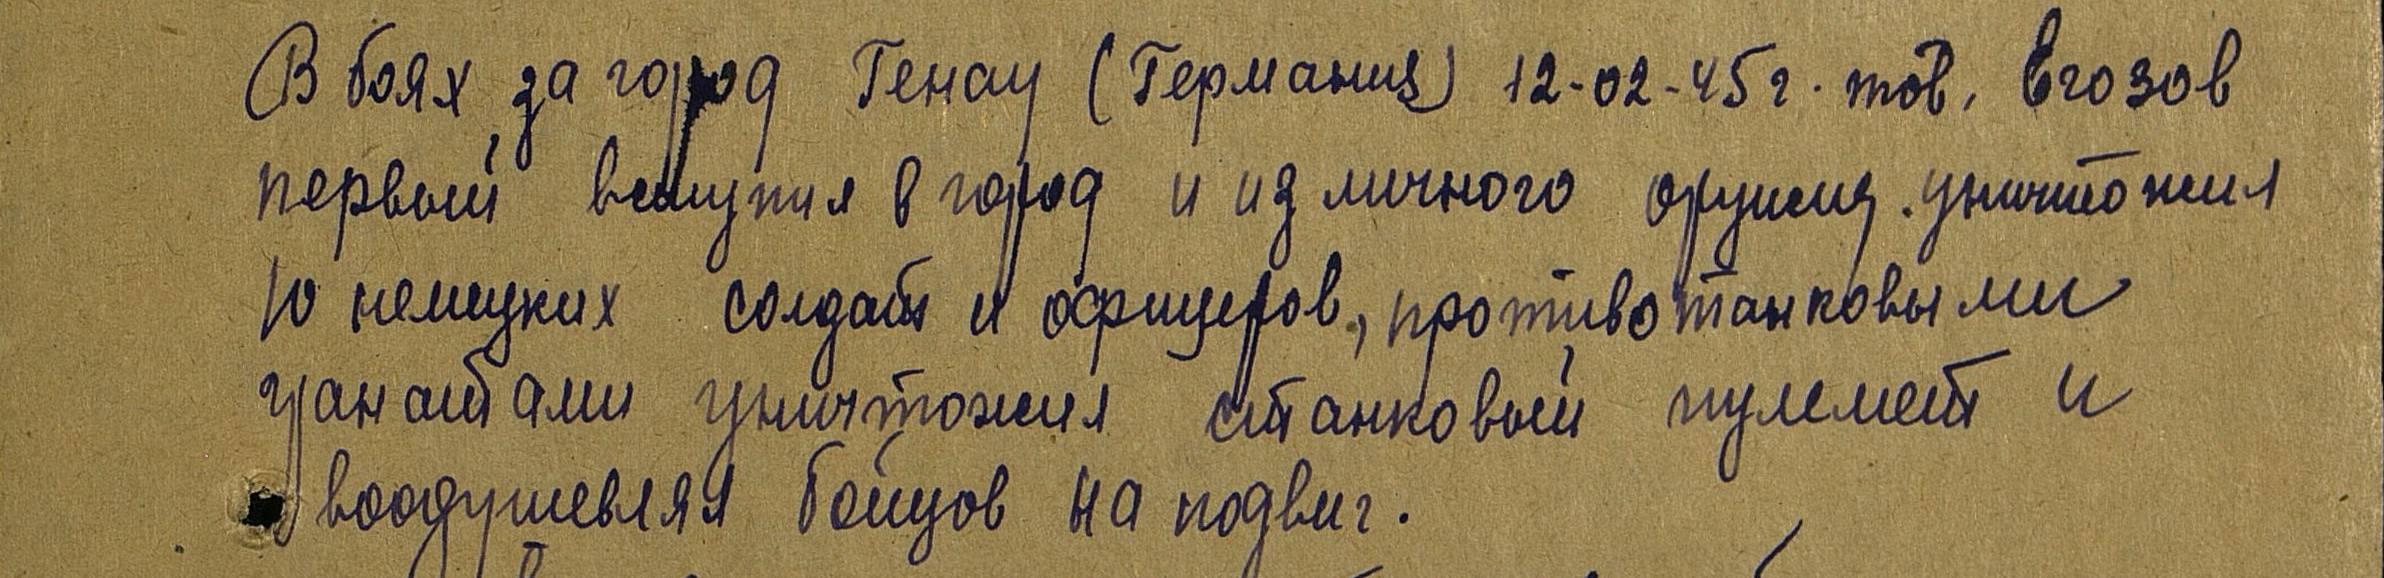 В боях за город Генау (Германия) 12-02-45г. тов. Егозов
первый вступил в город и из личного оружия уничтожил
10 немецких солдат и офицеров, противотанковыми
гранатами уничтожил станковый пулемет и
воодушевлял бойцов на подвиг.